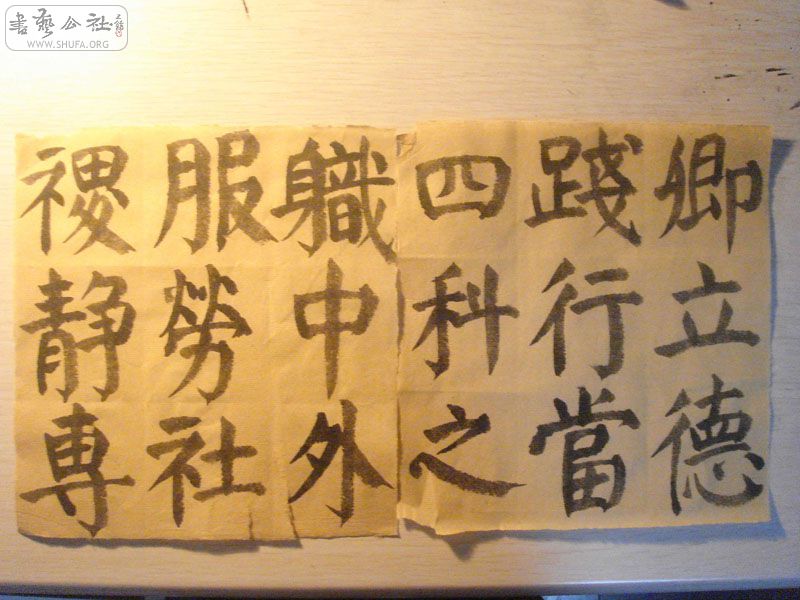 書藝公社
WWW.SHUFA.ORG
卿立德
踐行當
四科之
軄中外
服勞社
禝静専